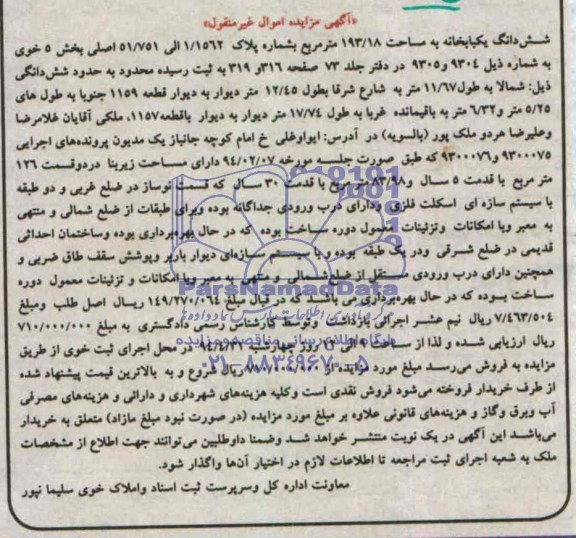 «آگهی مزایده اموال غیرمنقول»
ششدانگ یکبابخانه به مساحت ۱۹۳/۱۸ مترمربع بشماره پلاک ۱/۱۵۶۲ الی ۵۱/۷۵۱ اصلی بخش ۵ خوی
به شماره ذیل ۹۳۰۴ و۹۳۰۵ در دفتر جلد ۷۳ صفحه ۳۱۶و ۳۱۹ به ثبت رسیده محدود به حدود ششدانگی
ذیل: شمالا به طول۱۱/۶۷متر به شارع شرقا بطول ۱۲/۴۵ متر دیوار به دیوار قطعه 1159 جنوبا به طول های
۵/۲۵ متر و۶/۳۲متر به باقیمانده غربا به طول ۱۷/۷۴ متر دیوار به دیوار باقطعه۱۱۵۷، ملکی آقایان غلامرضا
وعلیرضا هردو ملک پور (بالسویه) در آدرس: ایواوغلی خ امام کوچه جانباز یک مدیون پرونده‌های اجرایی
۹۳۰۰۰۷۵ و۹۳۰۰۰۷۶ که طبق صورت جلسه مورخه ۹۴/۰۲/۰۷ دارای مساحت زیربنا دردوقسمت ۱۲۶
متر مربع با قدمت ۵ سال و۸۳/۹۸متر مربع با قدمت ۳۰ سال که قسمت نوساز در ضلع غربی و دو طبقه
با سیستم سازه ای اسکلت فلزی ودارای درب ورودی جداگانه بوده وبرای طبقات از ضلع شمالی و منتهی
به معبر وبا امکانات وتزئینات معمول دوره ساخت بوده که در حال بهره‌برداری بوده وساختمان احداثی
قدیمی در ضلع شرقی ودر یک طبقه بوده و با سیستم سازه‌ای دیوار باربر وپوشش سقف طاق ضربی و
همچنین دارای درب ورودی مستقل از ضلع شمالی و منتهی به معبر وبا امکانات و تزئینات معمول دوره
ساخت بوده که در حال بهره‌برداری می باشد که در قبال مبلغ ۱۴۹/۲۷۰/۰۶۴ ریال اصل طلب ومبلغ
۷/۴۶۳/۵۰۴ ریال نیم عشر اجرائی بازداشت وتوسط کارشناس رسمی دادگستری به مبلغ ۷۱۰/۰۰۰/۰۰۰
ریال ارزیابی شده و لذا از ساعت ۹ الی ۱۲ روز چهارشنبه ۹۴/۴/۳۱ در محل اجرای ثبت خوی از طریق
مزایده به فروش می‌رسد مبلغ مورد مزایده از ۷۱۰/۰۰۰/۰۰۰ ریال شروع و به بالاترین قیمت پیشنهاد شده
از طرف خریدار فروخته می‌شود فروش نقدی است وکلیه هزینه‌های شهرداری و دارائی و هزینه‌های مصرفی
آب وبرق وگاز و هزینه‌های قانونی علاوه بر مبلغ مورد مزایده (در صورت نبود مبلغ مازاد) متعلق به خریدار
می‌باشد این آگهی در یک نوبت منتشر خواهد شد وضمنا داوطلبین می‌توانند جهت اطلاع از مشخصات
ملک به شعبه اجرای ثبت مراجعه تا اطلاعات لازم در اختیار آن‌ها واگذار شود.
معاونت اداره کل وسرپرست ثبت اسناد واملاک خوی سلیما نپور
ParsNamadData
پایگاه اطلاع رسانی مناقصه و مزایده
۰۲۱-۸۸۳۴۹۶۷۰-۵